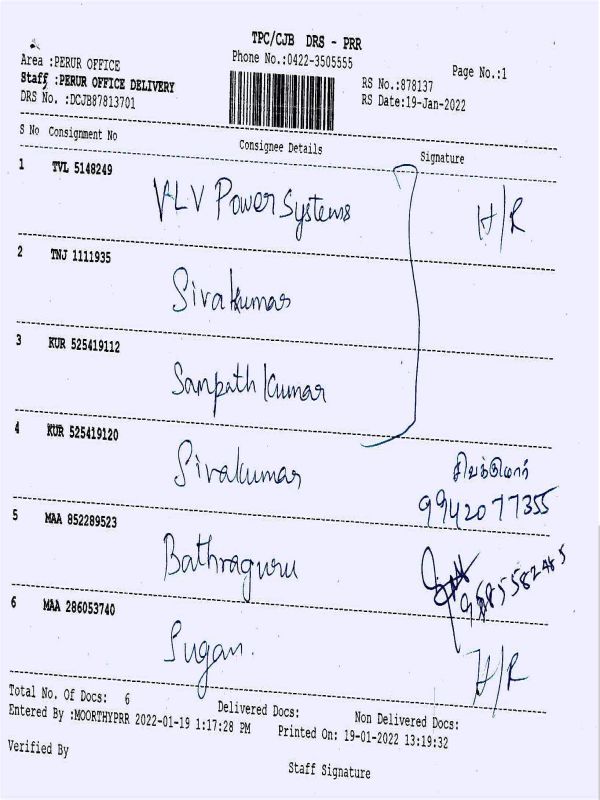 TPC/CJB DRS - PRR
Area :PERUR OFFICE
Phone No.:0422-3505555
Page No.:1
Staff :PERUR OFFICE DELIVERY
RS No.:878137
DRS No. :DCJB87813701
RS Date:19-Jan-2022
S No Consignment No Consignee Details Signature
1 TVL 5148249
VLV Power Systems H/R
2 TNJ 1111935
Sivakumar
3 KUR 525419112
Sampath Kumar
4 KUR 525419120
Sivakumar சிவக்குமார்
9942077355
5 MAA 852289523
Bathraguru
6 MAA 286053740
Sugan. H/R
Total No. Of Docs: 6 Delivered Docs: Non Delivered Docs:
Entered By :MOORTHYPRR 2022-01-19 1:17:28 PM Printed On: 19-01-2022 13:19:32
Verified By
Staff Signature